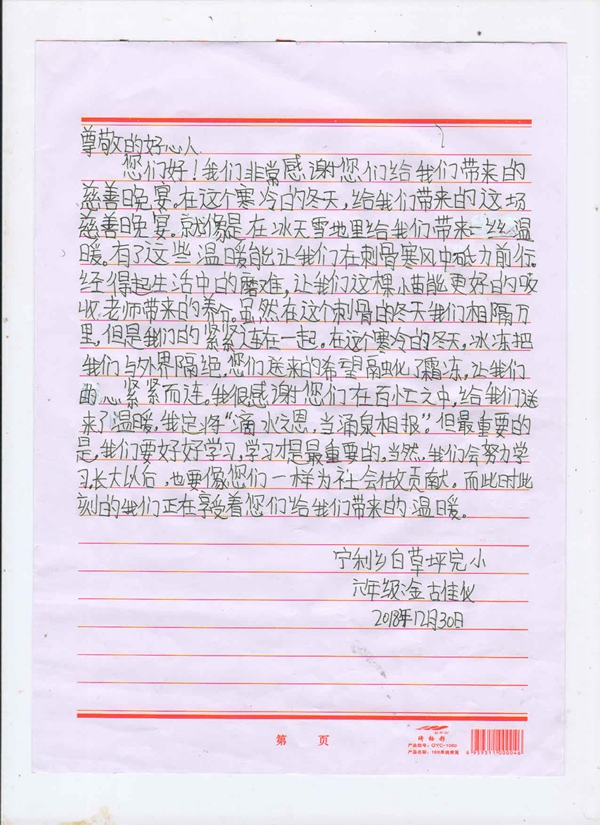 尊敬的好心人
您们好！我们非常感谢您们给我们带来的
慈善晚宴。在这个寒冷的冬天，给我们带来的这场
慈善晚宴。就像是在冰天雪地里给我们带来一丝温
暖。有了这些温暖能让我们在刺骨寒风中砥力前行。
经得起生活中的磨难，让我们这棵小苗能更好的吸
收老师带来的养分。虽然在这个刺骨的冬天我们相隔万
里，但是我们的紧紧连在一起。在这个寒冷的冬天，冰冻把
我们与外界隔绝，您们送来的希望融化了霜冻，让我们
的心紧紧而连。我很感谢您们在百忙之中，给我们送
来了温暖，我定将“滴水之恩，当涌泉相报”。但最重要的
是，我们要好好学习，学习才是最重要的。当然，我们会努力学
习，长大以后，也要像您们一样为社会做贡献。而此时此
刻的我们正在享受着您们给我们带来的温暖。
宁利乡白草坪完小
六年级：金古佳仪
2018年12月30日
第 页
产品型号：QYC-1060
产品名称：16K单线信笺
6 959311 000046